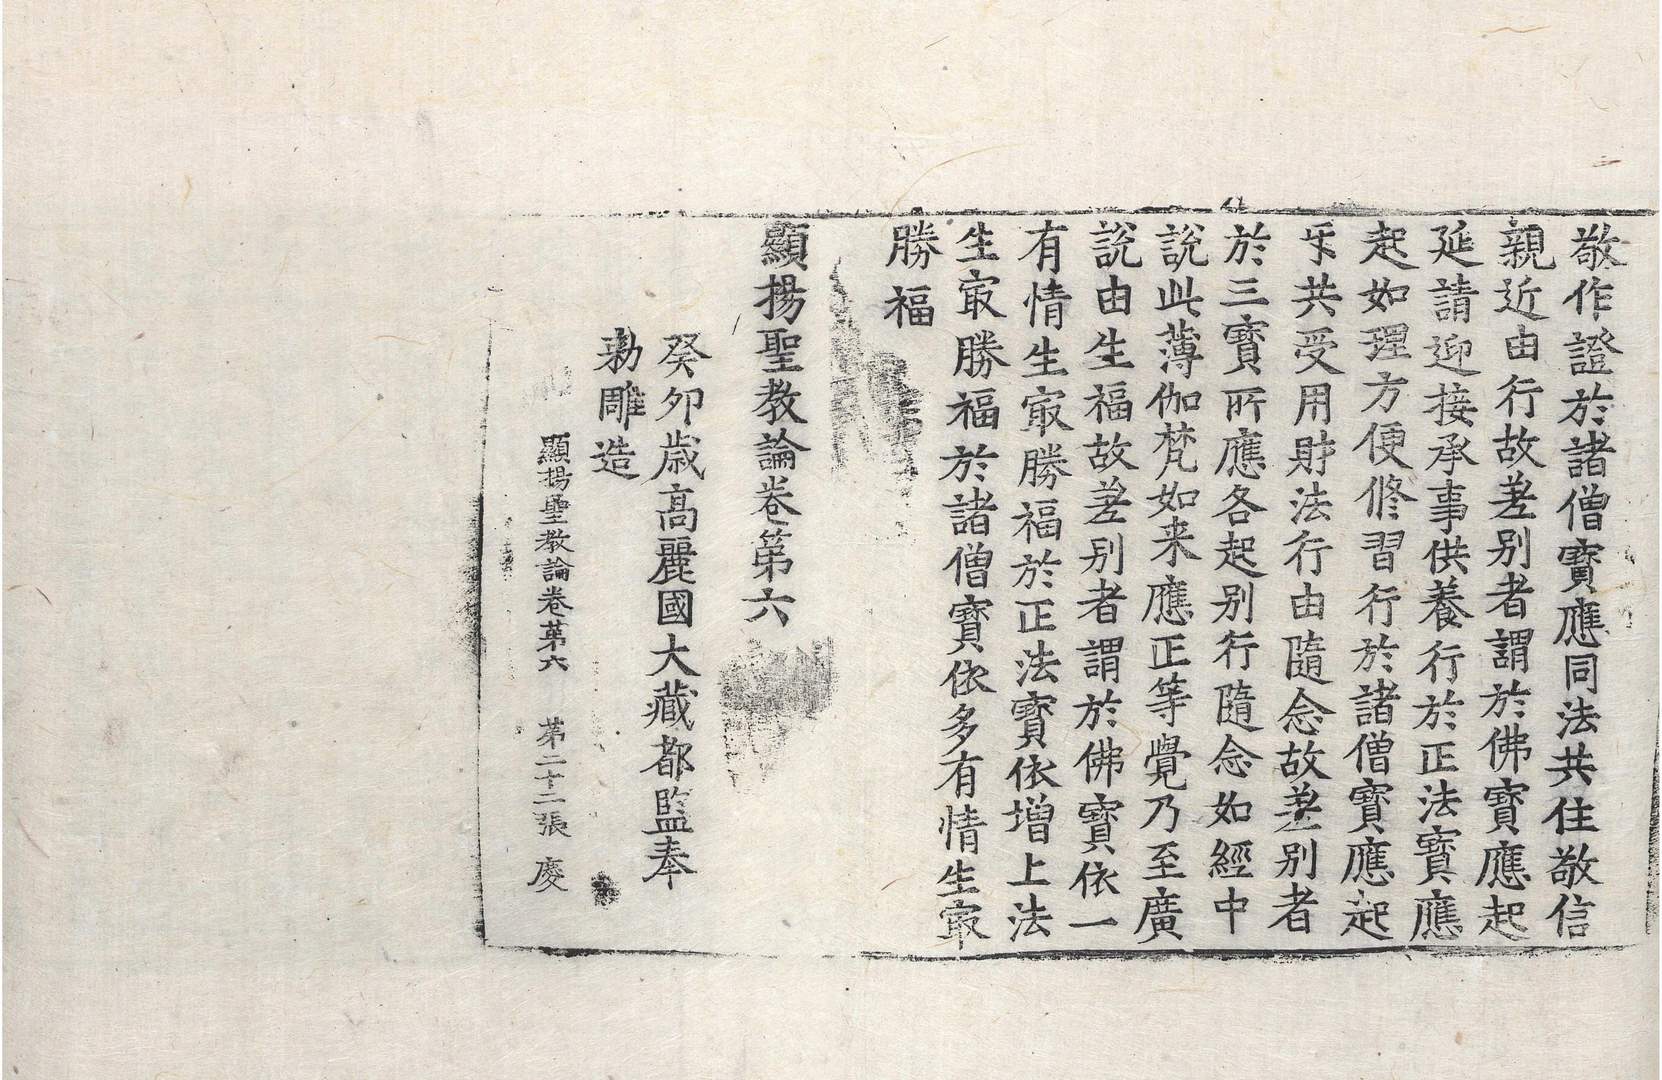 敬作證於諸僧寶應同法共住敬信
親近由行故差别者謂於佛寶應起
延請迎接承事供養行於正法寶應
起如理方便修習行於諸僧寶應起
乐共受用財法行由隨念故差别者
於三寶所應各起别行隨念如經中
說此薄伽梵如来應正等覺乃至廣
說由生福故差别者謂於佛寶依一
有情生㝡勝福於正法寶依增上法
生㝡勝福於諸僧寶依多有情生㝡
勝福
顯揚聖教論卷第六
癸夘歳高麗國大藏都監奉
勅雕造
顯揚聖教論卷苐六 苐二十二張 慶